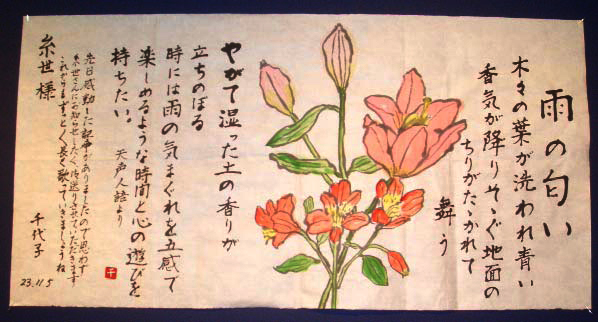 雨の匂い
木きの葉が洗われ青い
香気が降りそゝぐ地面の
ちりがたゝかれて
舞う
やがて湿った土の香りが
立ちのぼる
時には雨の気まぐれを五感で
楽しめるような時間と心の遊びを
持ちたい。
天声人語より
千
先日感動した記事がありましたので思わず
糸世さんにお知らせしたく、お送りさせていただきます
これからもずっと長く歌っていきましょうね
糸世様
千代子
23.11.5